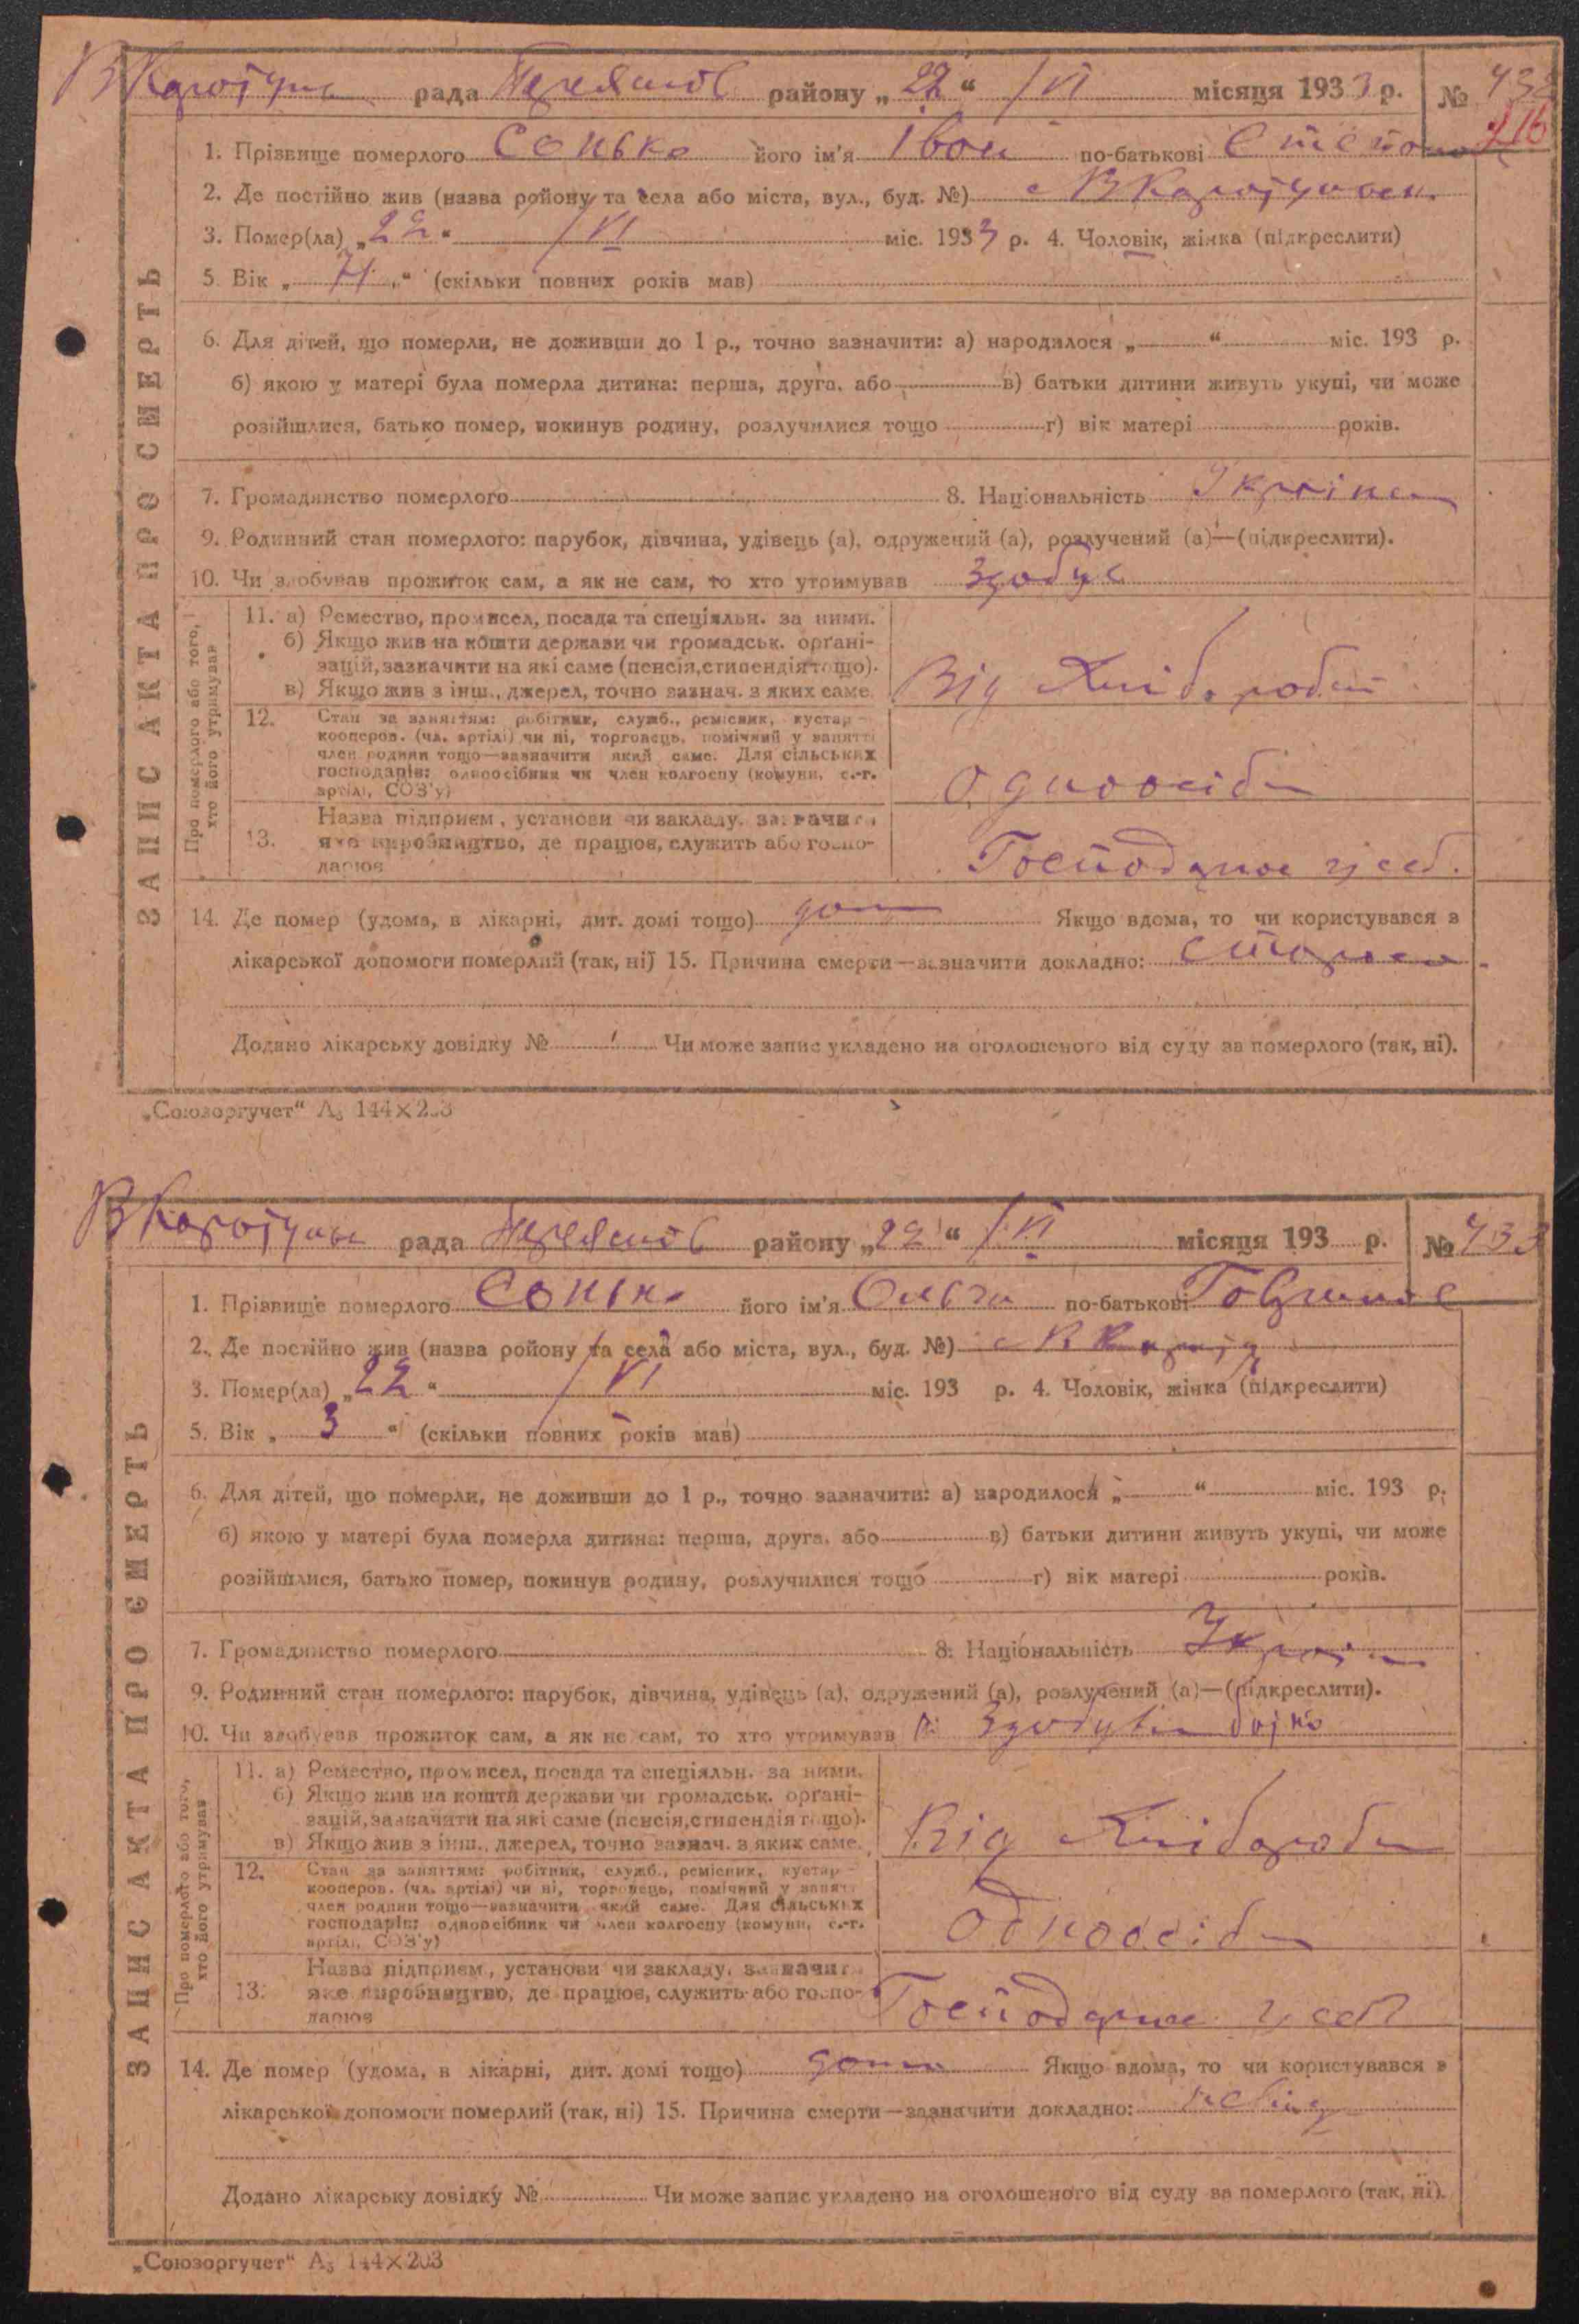 В Каратул рада Переяслов району „22“ /VI місяця 1933 р. № 432
116
1. Прізвище померлого Сонько його ім'я Іван по-батькові Степано
2. Де постійно жив (назва ройону та села або міста, вул., буд. №) с В Каратул
3. Помер(ла) „22“ /VI міс. 1933 р. 4. Чоловік, жінка (підкреслити)
5. Вік „71“ (скільки повних років мав)
6. Для дітей, що померли, не доживши до 1 р., точно зазначити: а) народилося „ “ міс. 193 р.
б) якою у матері була померла дитина: перша, друга, або в) батьки дитини живуть укупі, чи може
розійшлися, батько помер, покинув родину, розлучилися тощо г) вік матері років.
7. Громадянство померлого 8. Національність Україн
9. Родинний стан померлого: парубок, дівчина, удівець (а), одружений (а), розлучений (а)—(підкреслити).
10. Чи здобував прожиток сам, а як не сам, то хто утримував Здобув
ЗАПИС АКТА ПРО СМЕРТЬ
Про померлого або того, хто його утримував
11. а) Ремество, промисел, посада та спеціяльн. за ними.
б) Якщо жив на кошти держави чи громадськ. органі-
зацій, зазначити на які саме (пенсія, стипендія тощо).
в) Якщо жив з інш., джерел, точно зазнач. з яких саме.
Від хлібороб
12. Стан за заняттям: робітник, служб., ремісник, кустар —
кооперов. (чл. артілі) чи ні, торговець, помічний у занятті
член родини тощо—зазначити який саме. Для сільських
господарів: одноосібник чи член колгоспу (комуни, с.-г.
артілі, СОЗ'у)
Одноосібн
13. Назва підприєм., установи чи закладу, зазначити
яке виробництво, де працює, служить або госпо-
дарює
Господарює у себ.
14. Де помер (удома, в лікарні, дит. домі тощо) дома Якщо вдома, то чи користувався з
лікарської допомоги померлий (так, ні) 15. Причина смерти—зазначити докладно: старост
Додано лікарську довідку № Чи може запис укладено на оголошеного від суду за померлого (так, ні).
„Союзоргучет“ А₅ 144×203
В Каратул рада Переяслов району „22“ /VI місяця 193 р. № 433
1. Прізвище померлого Сонько його ім'я Ольга по-батькові Гаврилов
2. Де постійно жив (назва ройону та села або міста, вул., буд. №) с В Карат
3. Помер(ла) „22“ /VI міс. 193 р. 4. Чоловік, жінка (підкреслити)
5. Вік „3“ (скільки повних років мав)
6. Для дітей, що померли, не доживши до 1 р., точно зазначити: а) народилося „ “ міс. 193 р.
б) якою у матері була померла дитина: перша, друга, або в) батьки дитини живуть укупі, чи може
розійшлися, батько помер, покинув родину, розлучилися тощо г) вік матері років.
7. Громадянство померлого 8. Національність Україн
9. Родинний стан померлого: парубок, дівчина, удівець (а), одружений (а), розлучений (а)—(підкреслити).
10. Чи здобував прожиток сам, а як не сам, то хто утримував Здобував батько
ЗАПИС АКТА ПРО СМЕРТЬ
Про померлого або того, хто його утримував
11. а) Ремество, промисел, посада та спеціяльн. за ними.
б) Якщо жив на кошти держави чи громадськ. органі-
зацій, зазначити на які саме (пенсія, стипендія тощо).
в) Якщо жив з інш., джерел, точно зазнач. з яких саме.
Від хлібороб
12. Стан за заняттям: робітник, служб., ремісник, кустар —
кооперов. (чл. артілі) чи ні, торговець, помічний у занятті
член родини тощо—зазначити який саме. Для сільських
господарів: одноосібник чи член колгоспу (комуни, с.-г.
артілі, СОЗ'у)
Одноосібн
13. Назва підприєм., установи чи закладу, зазначити
яке виробництво, де працює, служить або госпо-
дарює
Господарює у себ
14. Де помер (удома, в лікарні, дит. домі тощо) дома Якщо вдома, то чи користувався з
лікарської допомоги померлий (так, ні) 15. Причина смерти—зазначити докладно: невід
Додано лікарську довідку № Чи може запис укладено на оголошеного від суду за померлого (так, ні).
„Союзоргучет“ А₅ 144×203